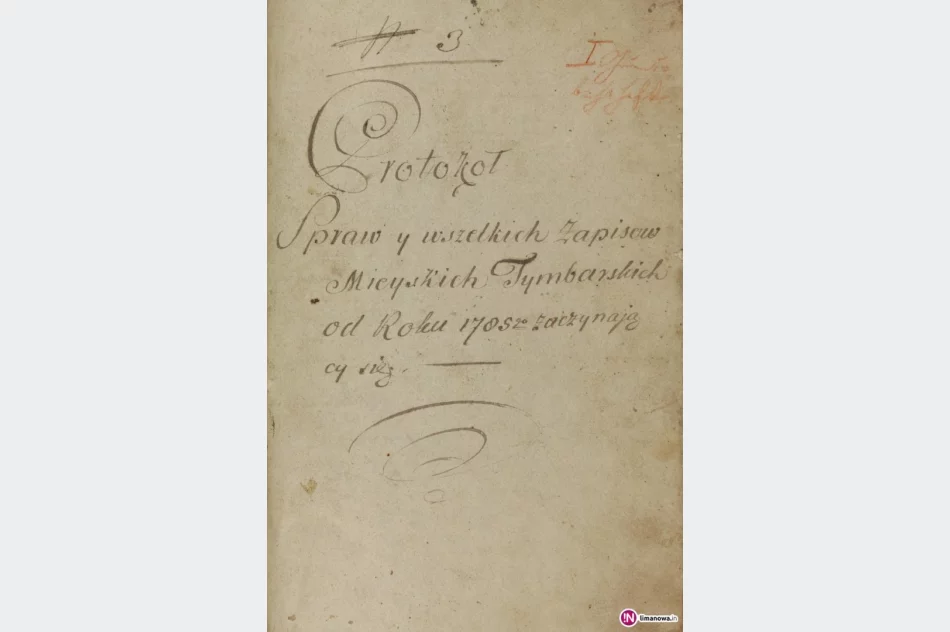 3
Protokoł
Spraw y wszelkich Zapisow
Mieyskich Tymbarskich
od Roku 1785go zaczynają
cy się.
I
limanowa.in